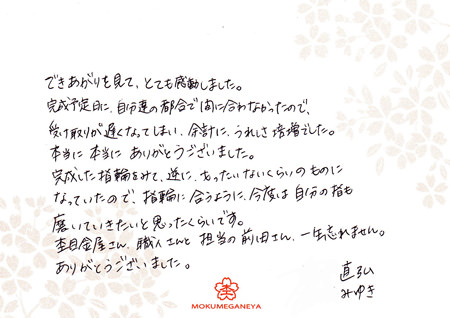 できあがりを見て、とても感動しました。
完成予定日に、自分達の都合で間に合わなかったので、
受け取りが遅くなってしまい、余計に、うれしさ倍増でした。
本当に 本当に ありがとうございました。
完成した指輪をみて、逆に、もったいないくらいのものに
なっていたので、指輪に合うように、今度は自分の指も
磨いていきたいと思ったくらいです。
杢目金屋さん、職人さんと担当の前田さん、一生忘れません。
ありがとうございました。
直弘
みゆき
MOKUMEGANEYA